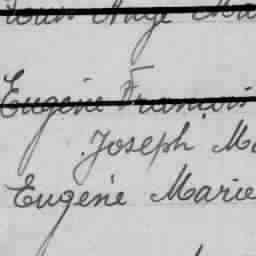 Ange
Eugène François
Joseph Ma
Eugène Marie